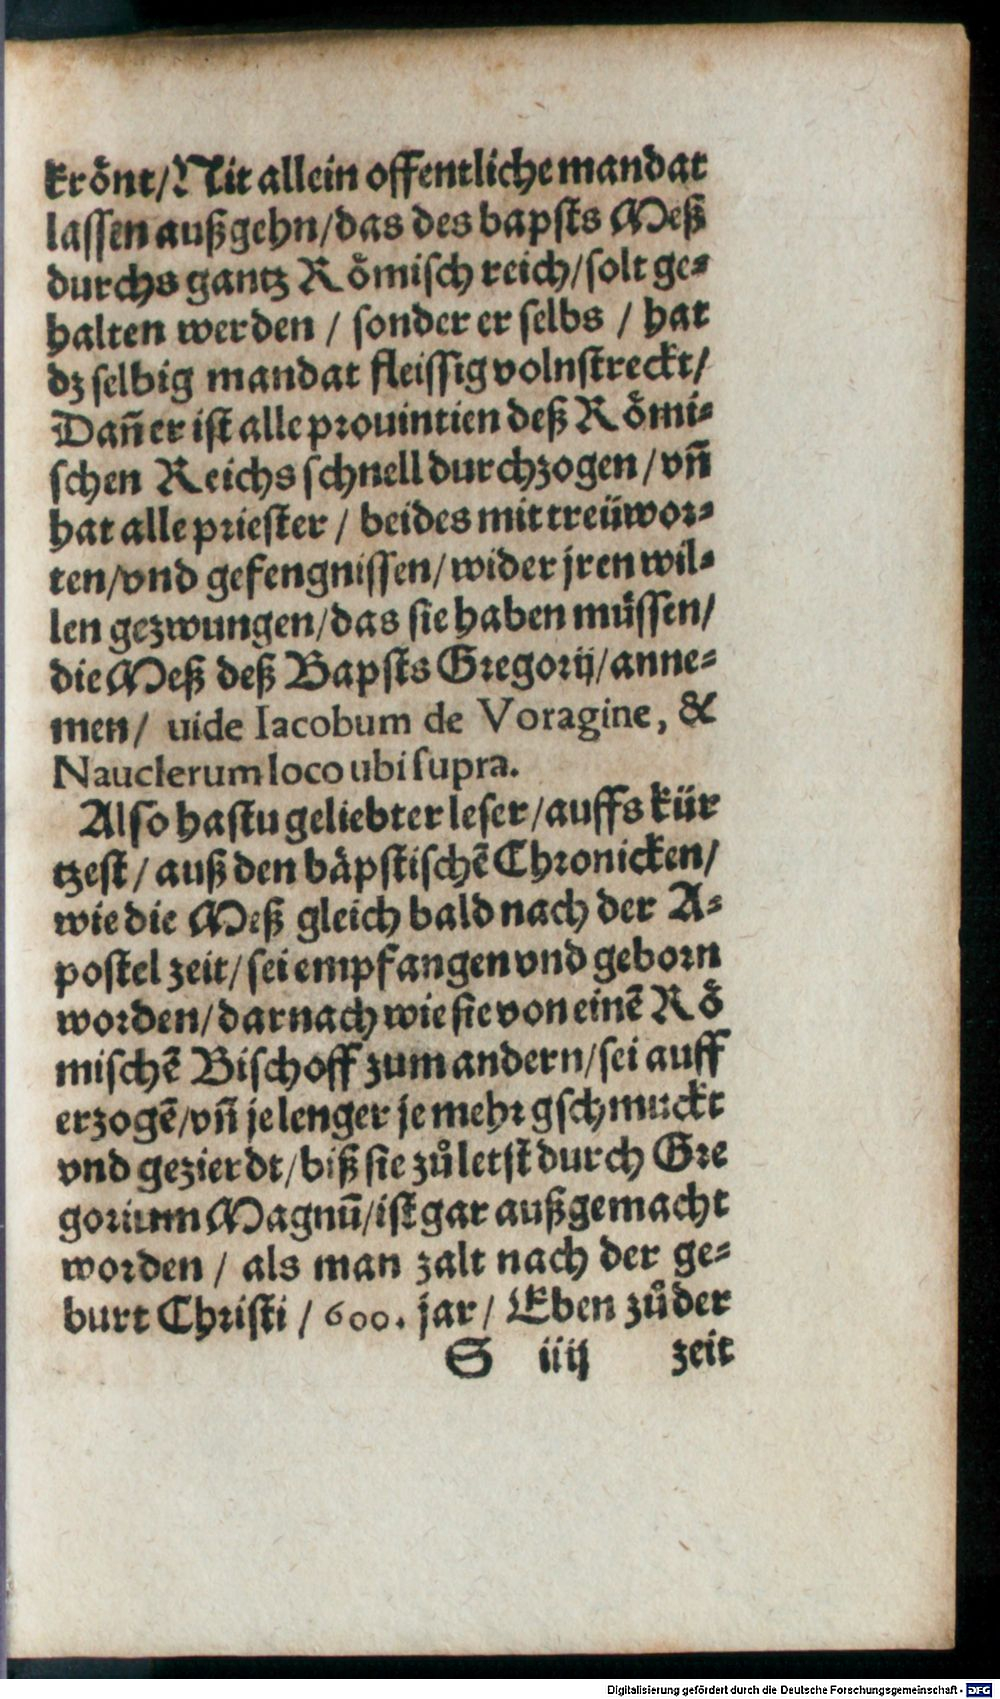 krönt/ Nit allein offentliche mandat
lassen außgehn/ das des bapsts Meß
durchs gantz Römisch reich/ solt ge-
halten werden / sonder er selbs / hat
dz selbig mandat fleissig volnstreckt/
Dañ er ist alle prouintien deß Römi-
schen Reichs schnell durchzogen / vñ
hat alle priester / beides mit treüwor-
ten/ vnd gefengnissen/ wider jren wil-
len gezwungen/ das sie haben müssen/
die Meß deß Bapsts Gregorij/ anne-
men/ uide Iacobum de Voragine, &
Nauclerum loco ubi supra.
Also hastu geliebter leser/ auffs kür
tzest / auß den bäpstischē Chronicken/
wie die Meß gleich bald nach der A-
postel zeit/ sei empfangen vnd geborn
worden/ darnach wie sie von einē Rö
mischē Bischoff zum andern/ sei auff
erzogē/ vñ je lenger je mehr gschmuckt
vnd gezierdt/ biß sie zůletst durch Gre
gorium Magnū/ ist gar außgemacht
worden / als man zalt nach der ge-
burt Christi / 600. jar/ Eben zůder
S iiij zeit
Digitalisierung gefördert durch die Deutsche Forschungsgemeinschaft - DFG